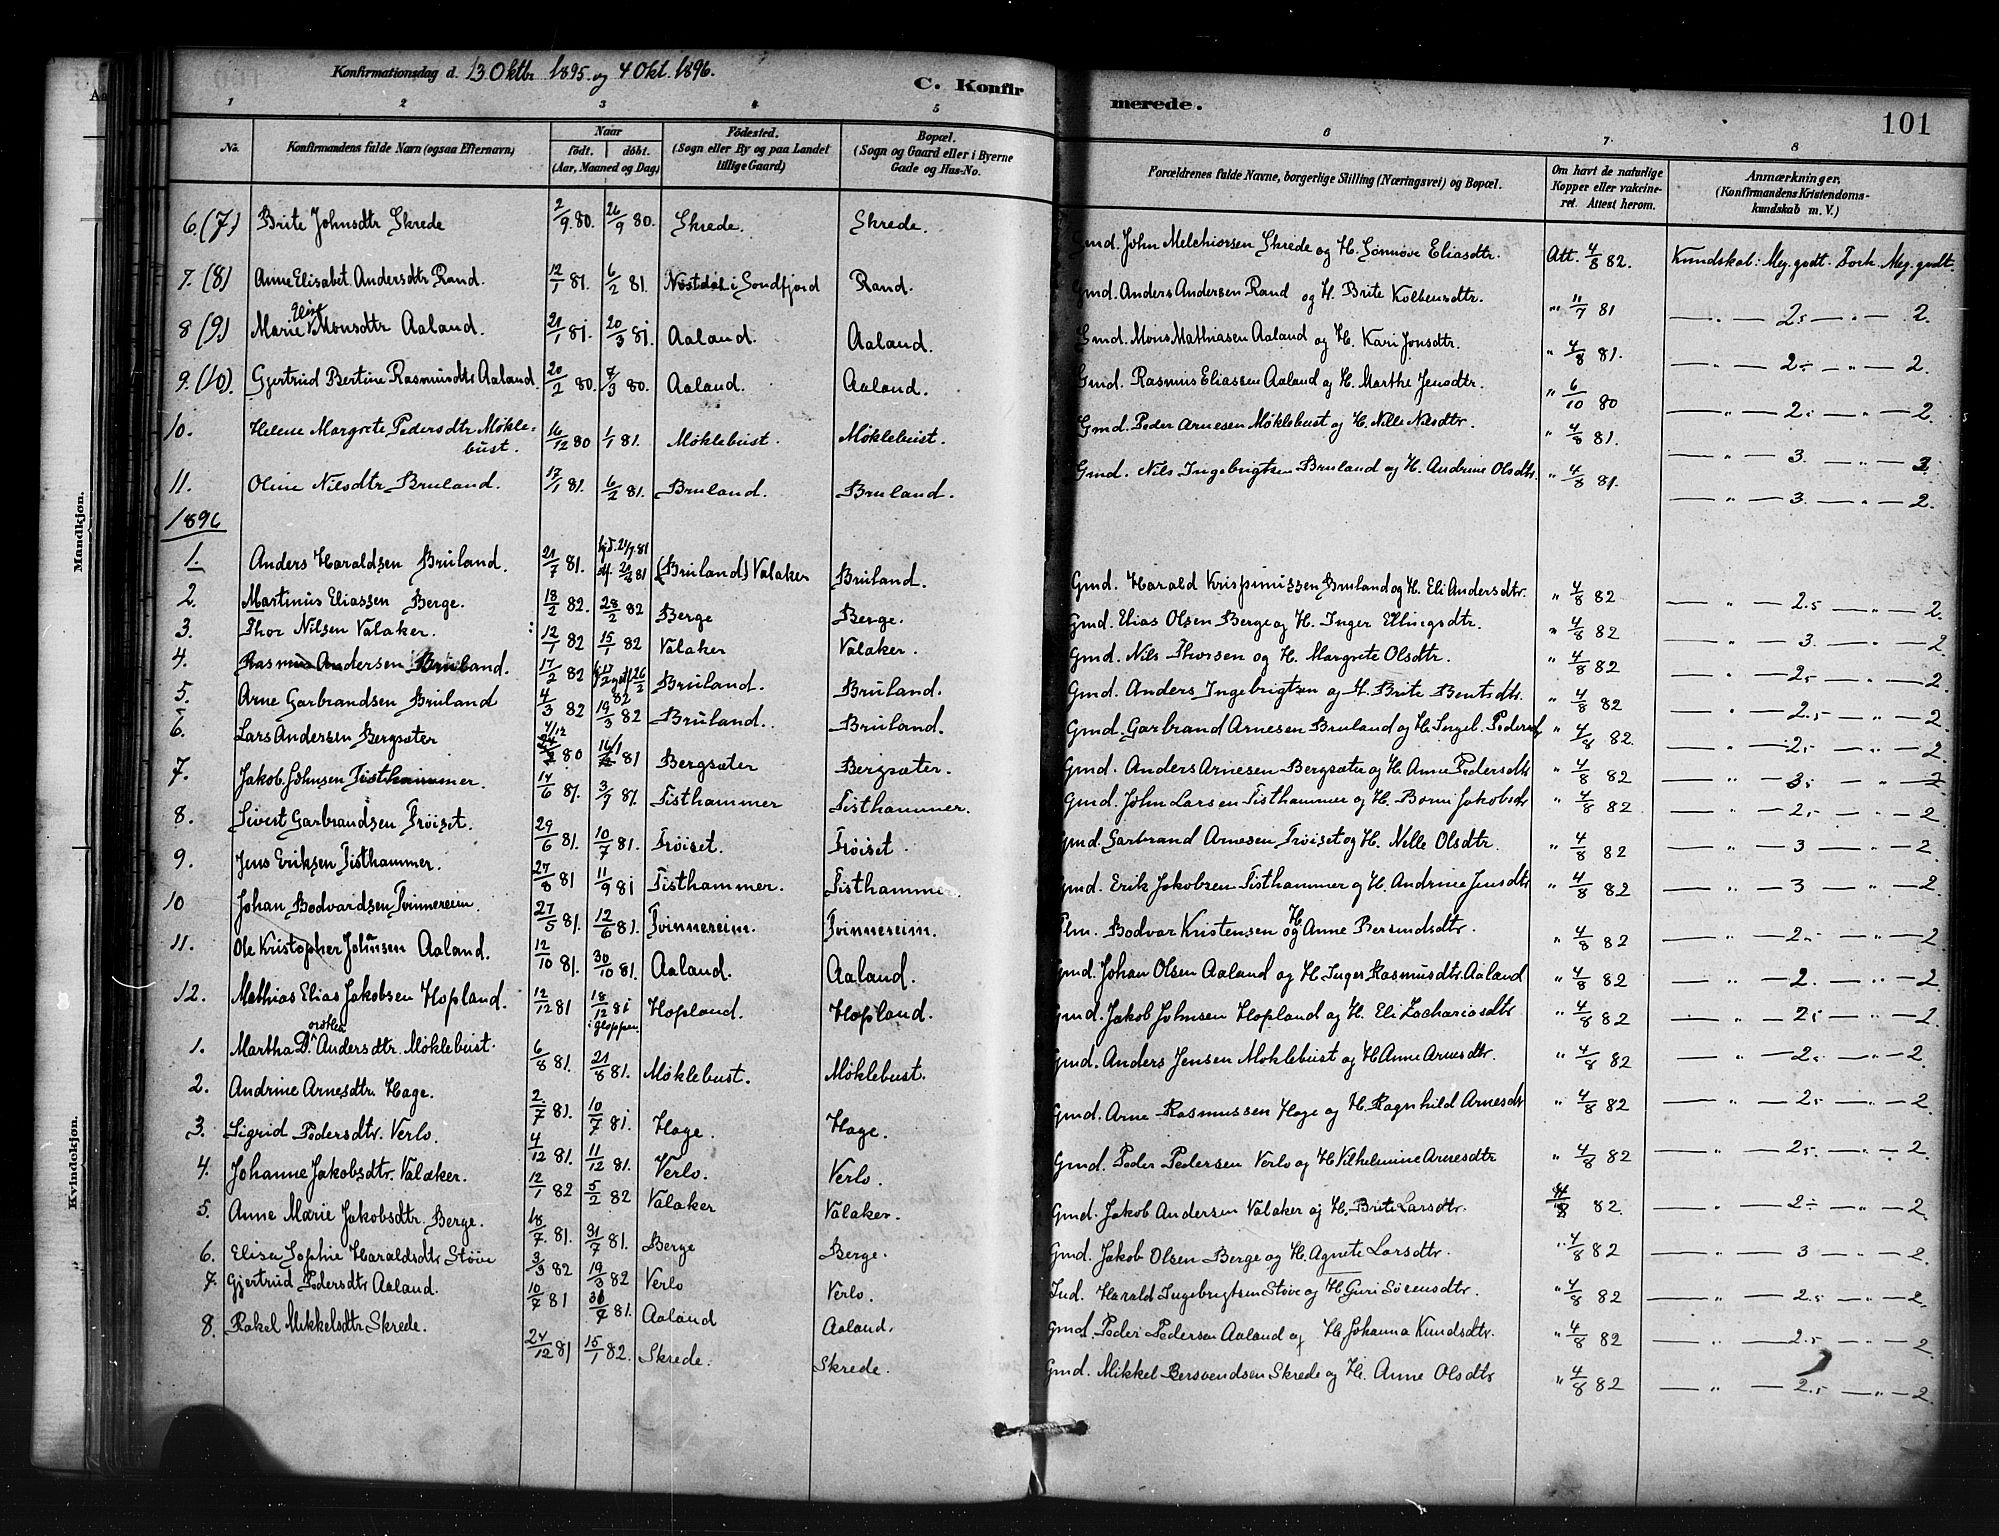 Konfirmationsdag d. 13 Oktbr 1895 og 4 Okt. 1896.
C. Konfirmerede.
101
1 2 3 4 5 6 7 8
No. Konfirmandens fulde Navn (ogsaa Efternavn) Naar født. døbt. (Aar, Maaned og Dag) Fødested. (Sogn eller By og paa Landet tillige Gaard) Bopæl. (Sogn og Gaard eller i Byerne Gade og Hus-No. Forældrenes fulde Navne, borgerlige Stilling (Næringsvei) og Bopæl. Om havt de naturlige Kopper eller vakcineret. Attest herom. Anmærkninger. (Konfirmandens Kristendomskundskab m. V.)
6. (7) Brite Johnsdtr Skrede 2/9 80. 26/9 80. Skrede. Skrede. Gmd. John Melchiorsen Skrede og H. Sønnøve Eliasdtr. Att. 4/8 82. Kundskab: Meg. godt. Forh. Meg. godt.
7. (8) Anne Elisabet Andersdtr Rand. 12/1 81. 6/2 81. i Søndfjord Rand. Gmd. Anders Andersen Rand og H. Brite Kolbensdtr. " 11/7 81 — " — 2,5 — " — 2.
8 (9) Marie Monsdtr Aaland. 21/1 81. 20/3 81. Aaland. Aaland. Gmd. Mons Mathiasen Aaland og H. Kari Jonsdtr. " 4/8 81. — " — 2,5 — " — 2
9. (10). Gjertrud Bertine Rasmusdtr Aaland. 20/2 80. 7/3 80. Aaland. Aaland. Gmd. Rasmus Eliassen Aaland og H. Marthe Jensdtr. " 6/10 80 — " — 2. — " — 2
10. Helene Margrete Pedersdtr Møklebust. 16/12 80 1/1 81. Møklebust. Møklebust. Gmd. Peder Arnesen Møklebust og H. Nille Nilsdtr. " 4/8 81. — " — 3. — " — 3.
11. Oline Nilsdtr Bruland. 17/1 81. 6/2 81. Bruland. Bruland. Gmd. Nils Ingebrigtsen Bruland og H. Andrine Olsdtr. " 4/8 81. — " — 3. — " — 2.
1896
1. Anders Haraldsen Bruland. 21/7 81. hjd. 21/7 81 (Bruland) Valaker Bruland. Gmd. Harald Krispinussen Bruland og H. Eli Andersdtr. " 4/8 82 — " — 2,5 — " — 2.
2. Martinus Eliassen Berge. 18/2 82. 28/2 82 Berge Berge. Gmd. Elias Olsen Berge og H. Inger Ellingsdtr. " 4/8 82 — " — 3. — " — 2
3. Thor Nilsen Valaker. 12/1 82 15/1 82 Valaker Valaker. Gmd. Nils Thorsen og H. Margrete Olsdtr. " 4/8 82 — " — 2,5 — " — 2
4. Rasmus Andersen Bruland. 17/2 82 26/2 82 Bruland. Bruland. Gmd. Anders Ingebrigtsen og H. Brite Bentsdtr. " 4/8 82 — " — 2,5 — " — 2
5. Arne Garbrandsen Bruland 4/3 82 19/3 82 Bruland. Bruland. Gmd. Garbrand Arnesen Bruland og H. Ingeb. Pedersd. " 4/8 82. — " — 2,5 — " — 2
6. Lars Andersen Bergsæter 4/12 80 16/1 81 Bergsæter Bergsæter. Gmd. Anders Arnesen Bergsæter og H. Anne Pedersdtr " 4/8 82 — " — 3. — " — 2
7. Jakob Johnsen Tisthammer. 14/6 81. 3/7 81 Tisthammer Tisthammer. Gmd. John Larsen Tisthammer og H. Borni Jakobsdtr " 4/8 82 — " — 2,5 — " — 2
8. Sivert Garbrandsen Trøiset. 29/6 81. 10/7 81. Trøiset. Trøiset. Gmd. Garbrand Arnesen Trøiset og H. Nelle Olsdtr. " 4/8 82 — " — 3 — " — 2.
9. Jens Eriksen Tisthammer. 27/8 81 11/9 81 Tisthammer. Tisthammer. Gmd. Erik Jakobsen Tisthammer og H. Andrine Jensdtr " 4/8 82 — " — 3 — " — 2.
10 Johan Bodvardsen Tvinnereim. 27/5 81. 12/6 81. Tvinnereim. Tvinnereim. Plm. Bodvar Kristensen og H. Anne Bersundsdtr. " 4/8 82 — " — 2,5 — " — 2.
11. Ole Kristopher Johansen Aaland. 12/10 81. 30/10 81. Aaland. Aaland. Gmd. Johan Olsen Aaland og H. Inger Rasmusdtr. Aaland " 4/8 82 — " — 2. — " — 2
12. Mathias Elias Jakobsen Hopland. 12/12 81 18/12 81 i Gloppen. Hopland. Hopland. Gmd. Jakob Johnsen Hopland og H. Eli Zachariasdtr " 4/8 82 — " — 2,5 — " — 2.
1. Martha Dorothea Andersdtr. Møklebust. 6/8 81. 21/8 81. Møklebust. Møklebust. Gmd. Anders Jensen Møklebust og H. Anne Arnesdtr. " 4/8 82 — " — 2,5 — " — 2.
2. Andrine Arnesdtr. Hage. 2/7 81. 10/7 81. Hage. Hage. Gmd. Arne Rasmussen Hage og H. Ragnhild Arnesdtr " 4/8 82 — " — 2,5 — " — 2.
3. Sigrid Pedersdtr. Verlo. 4/12 81. 11/12 81. Verlo. Verlo. Gmd. Peder Pedersen Verlo og H. Vilhelmine Arnesdtr " 4/8 82 — " — 2,5 — " — 2.
4. Johanne Jakobsdtr. Valaker. 12/1 82 5/2 82 Valaker Valaker. Gmd. Jakob Andersen Valaker og H. Brite Larsdtr. 4/8 82. — " — 2,5 — " — 2.
5. Anne Marie Jakobsdtr. Berge. 18/7 81. 31/7 81. Berge Berge. Gmd. Jakob Olsen Berge og H. Agnete Larsdtr. " 4/8 82 — " — 3 — " — 2.
6. Elisa Sophie Haraldsdtr Støve 3/3 82 19/3 82 Verlo Verlo. Ind. Harald Ingebrigtsen Støve og H. Guri Sørensdtr. " 4/8 82 — " — 2,5 — " — 2.
7. Gjertrud Pedersdtr Aaland. 10/7 81 31/7 81. Aaland Aaland. Gmd. Peder Pedersen Aaland og H. Johanna Knudsdtr. " 4/8 82 — " — 2,5 — " — 2.
8. Rakel Mikkelsdtr Skrede. 24/12 81 15/1 82. Skrede. Skrede. Gmd. Mikkel Bersvendsen Skrede og H. Anne Olsdtr " 4/8 82 — " — 2,5 — " — 2.
Mandkjøn.
Kvindekjøn.